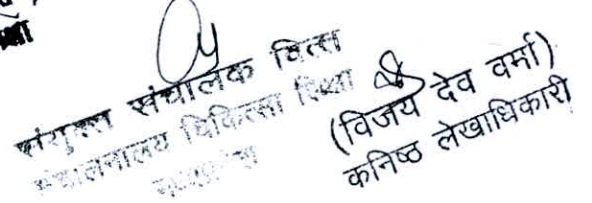 संयुक्त संचालक वित्त
संचालनालय चिकित्सा शिक्षा
(विजय देव वर्मा)
कनिष्ठ लेखाधिकारी